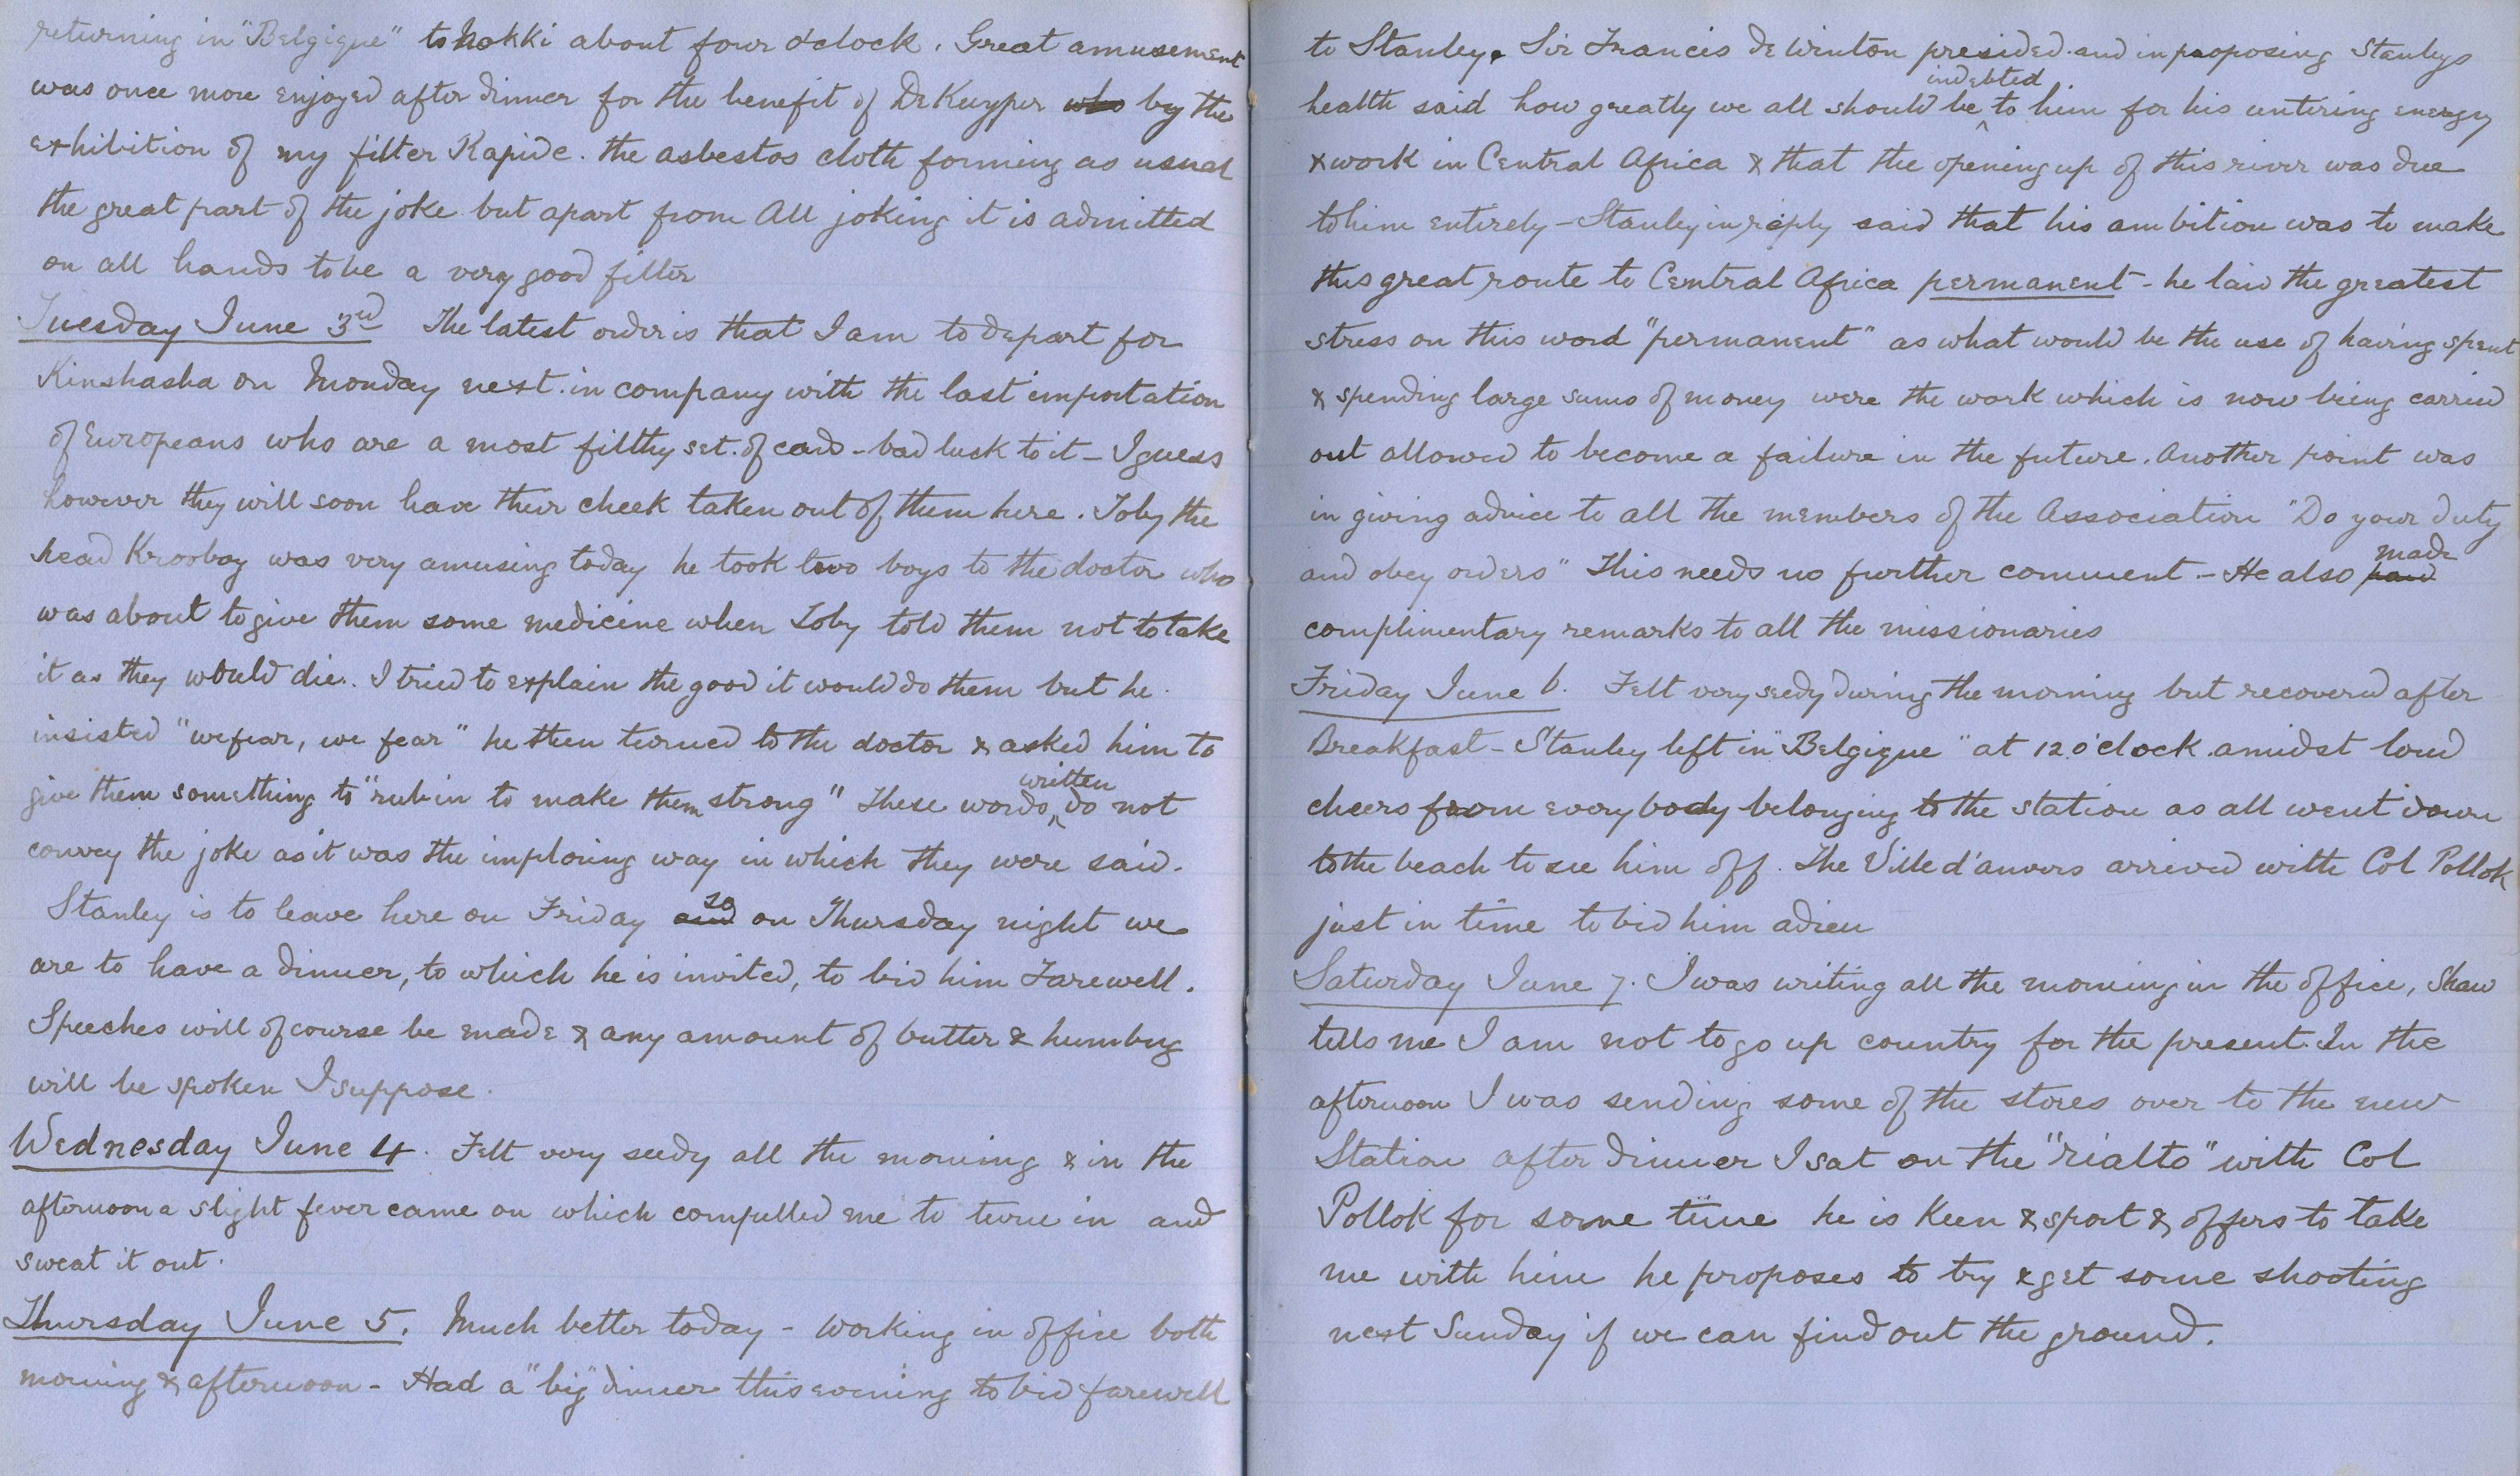 returning in "Belgique" to Nokki about four o'clock. Great amusement
was once more enjoyed after dinner for the benefit of De Kuyper who by the
exhibition of my filter Rapide. the asbestos cloth forming as usual
the great part of the joke but apart from all joking it is admitted
on all hands to be a very good filter
Tuesday June 3rd The latest order is that I am to depart for
Kinshasha on Monday next. in company with the last importation
of Europeans who are a most filthy set. of cads - bad luck to it - I guess
however they will soon have their cheek taken out of them here. Toby the
head Krooboy was very amusing today he took two boys to the doctor who
was about to give them some medicine when Toby told them not to take
it as they would die. I tried to explain the good it would do them but he
insisted "we fear, we fear" he then turned to the doctor & asked him to
give them something to "rub in to make them strong" These words written do not
convey the joke as it was the imploring way in which they were said.
Stanley is to leave here on Friday and so on Thursday night we
are to have a dinner, to which he is invited, to bid him Farewell.
Speeches will of course be made & any amount of butter & humbug
will be spoken I suppose.
Wednesday June 4. Felt very seedy all the morning & in the
afternoon a slight fever came on which compelled me to turn in and
sweat it out.
Thursday June 5. Much better today - working in office both
morning & afternoon - Had a "big" dinner this evening to bid farewell
to Stanley. Sir Francis de Winton presided and in proposing Stanleys
health said how greatly we all should be indebted to him for his untiring energy
& work in Central Africa & that the opening up of this river was due
to him entirely - Stanley in reply said that his ambition was to make
this great route to Central Africa permanent - he laid the greatest
stress on this word "permanent" as what would be the use of having spent
& spending large sums of money were the work which is now being carried
out allowed to become a failure in the future. Another point was
in giving advice to all the members of the Association "Do your duty
and obey orders" This needs no further comment - He also paid made
complimentary remarks to all the missionaries
Friday June 6. Felt very seedy during the morning but recovered after
Breakfast - Stanley left in "Belgique" at 12 o'clock amidst loud
cheers from everybody belonging to the station as all went down
to the beach to see him off. The Ville d'anvers arrived with Col Pollok
just in time to bid him adieu
Saturday June 7. I was writing all the morning in the office, Shaw
tells me I am not to go up country for the present. In the
afternoon I was sending some of the stores over to the new
Station after dinner I sat on the "rialto" with Col
Pollok for some time he is keen & sport & offers to take
me with him he proposes to try & get some shooting
next Sunday if we can find out the ground.